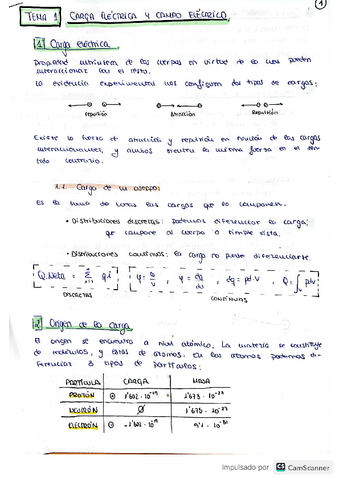 1
TEMA 1. CARGA ELÉCTRICA Y CAMPO ELÉCTRICO
1 Carga eléctrica
Propiedad intrínseca de los cuerpos en virtud de la cual pueden
interaccionar con el resto.
La evidencia experimental nos configura dos tipos de cargas:
repulsión atracción Repulsión
Existe la fuerza de atracción y repulsión en función de las cargas
interaccionantes, y ambos sienten la misma fuerza en el sen-
tido contrario.
1.1. Carga de un cuerpo
Es la suma de todas las cargas que lo componen.
• Distribuciones discretas: podemos diferenciar la carga
que compone al cuerpo a simple vista.
• Distribuciones continuas: la carga no puede diferenciarse.
Q Neta = Σ qi
φ = Q/V , φ = dq/dv , dq = ρdV , Q = ∫ ρdv
DISCRETAS CONTINUAS
2 Origen de la carga
El origen se encuentra a nivel atómico. La materia se constituye
de moléculas, y estas de átomos. En los átomos podemos di-
ferenciar 3 tipos de partículas:
PARTÍCULA CARGA MASA
PROTÓN ⊕ 1'602 · 10⁻¹⁹ 1'673 · 10⁻²⁷
NEUTRÓN Ø 1'675 · 10⁻²⁷
ELECTRÓN ⊖ -1'602 · 10⁻¹⁹ 9'1 · 10⁻³¹
Impulsado por CS CamScanner